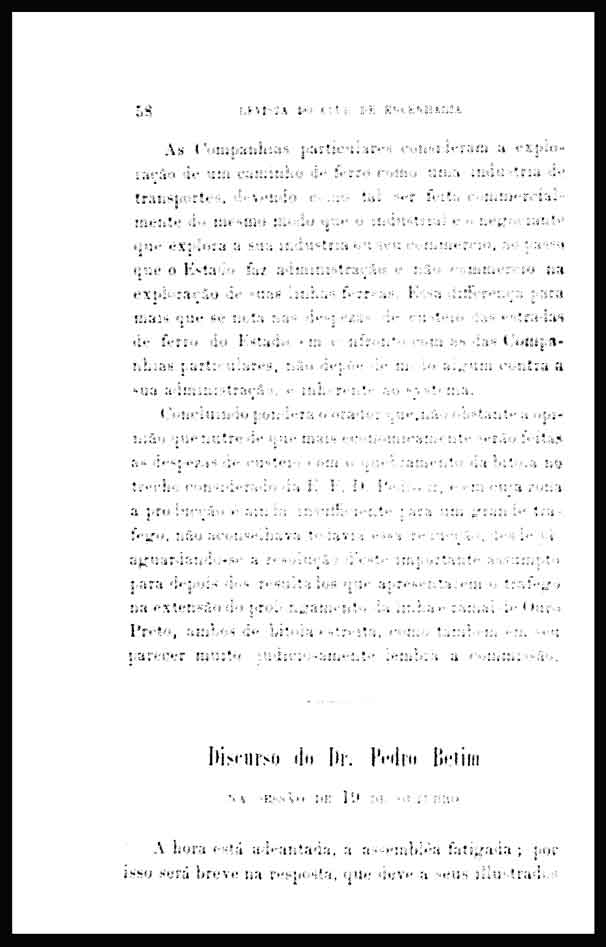 58 REVISTA DO CLUB DE ENGENHARIA
As Companhias particulares consideram a explo-
ração de um caminho de ferro como uma industria de
transportes, devendo como tal ser feita commercial-
mente do mesmo modo que o industrial e o negociante
que explora a sua industria ou seu commercio, ao passo
que o Estado faz administração e não commercio na
exploração de suas linhas ferreas. Essa differença para
mais que se nota nas despezas de custeio das estradas
de ferro do Estado em confronto com as das Compa-
nhias particulares, não depõe de modo algum contra a
sua administração, é inherente ao systema.
Concluindo pondera o orador que, não obstante a opi-
nião que nutre de que mais economicamente serão feitas
as despezas de custeio com o quebramento da bitola no
trecho considerado da E. F. D. Pedro II, e em cuja zona
a producção é ainda insufficiente para um grande tra-
fego, não aconselhava todavia essa reducção, desde já
aguardando-se a resolução d'este importante assumpto
para depois dos resultados que apresentarem o trafego
na extensão do prolongamento da linha e ramal de Ouro
Preto, ambos de bitola estreita, como tambem em seu
parecer muito judiciosamente lembra a commissão.
Discurso do Dr. Pedro Betim
NA SESSÃO DE 19 DE OUTUBRO
A hora está adeantada, a assembléa fatigada; por
isso será breve na resposta, que deve a seus illustrados